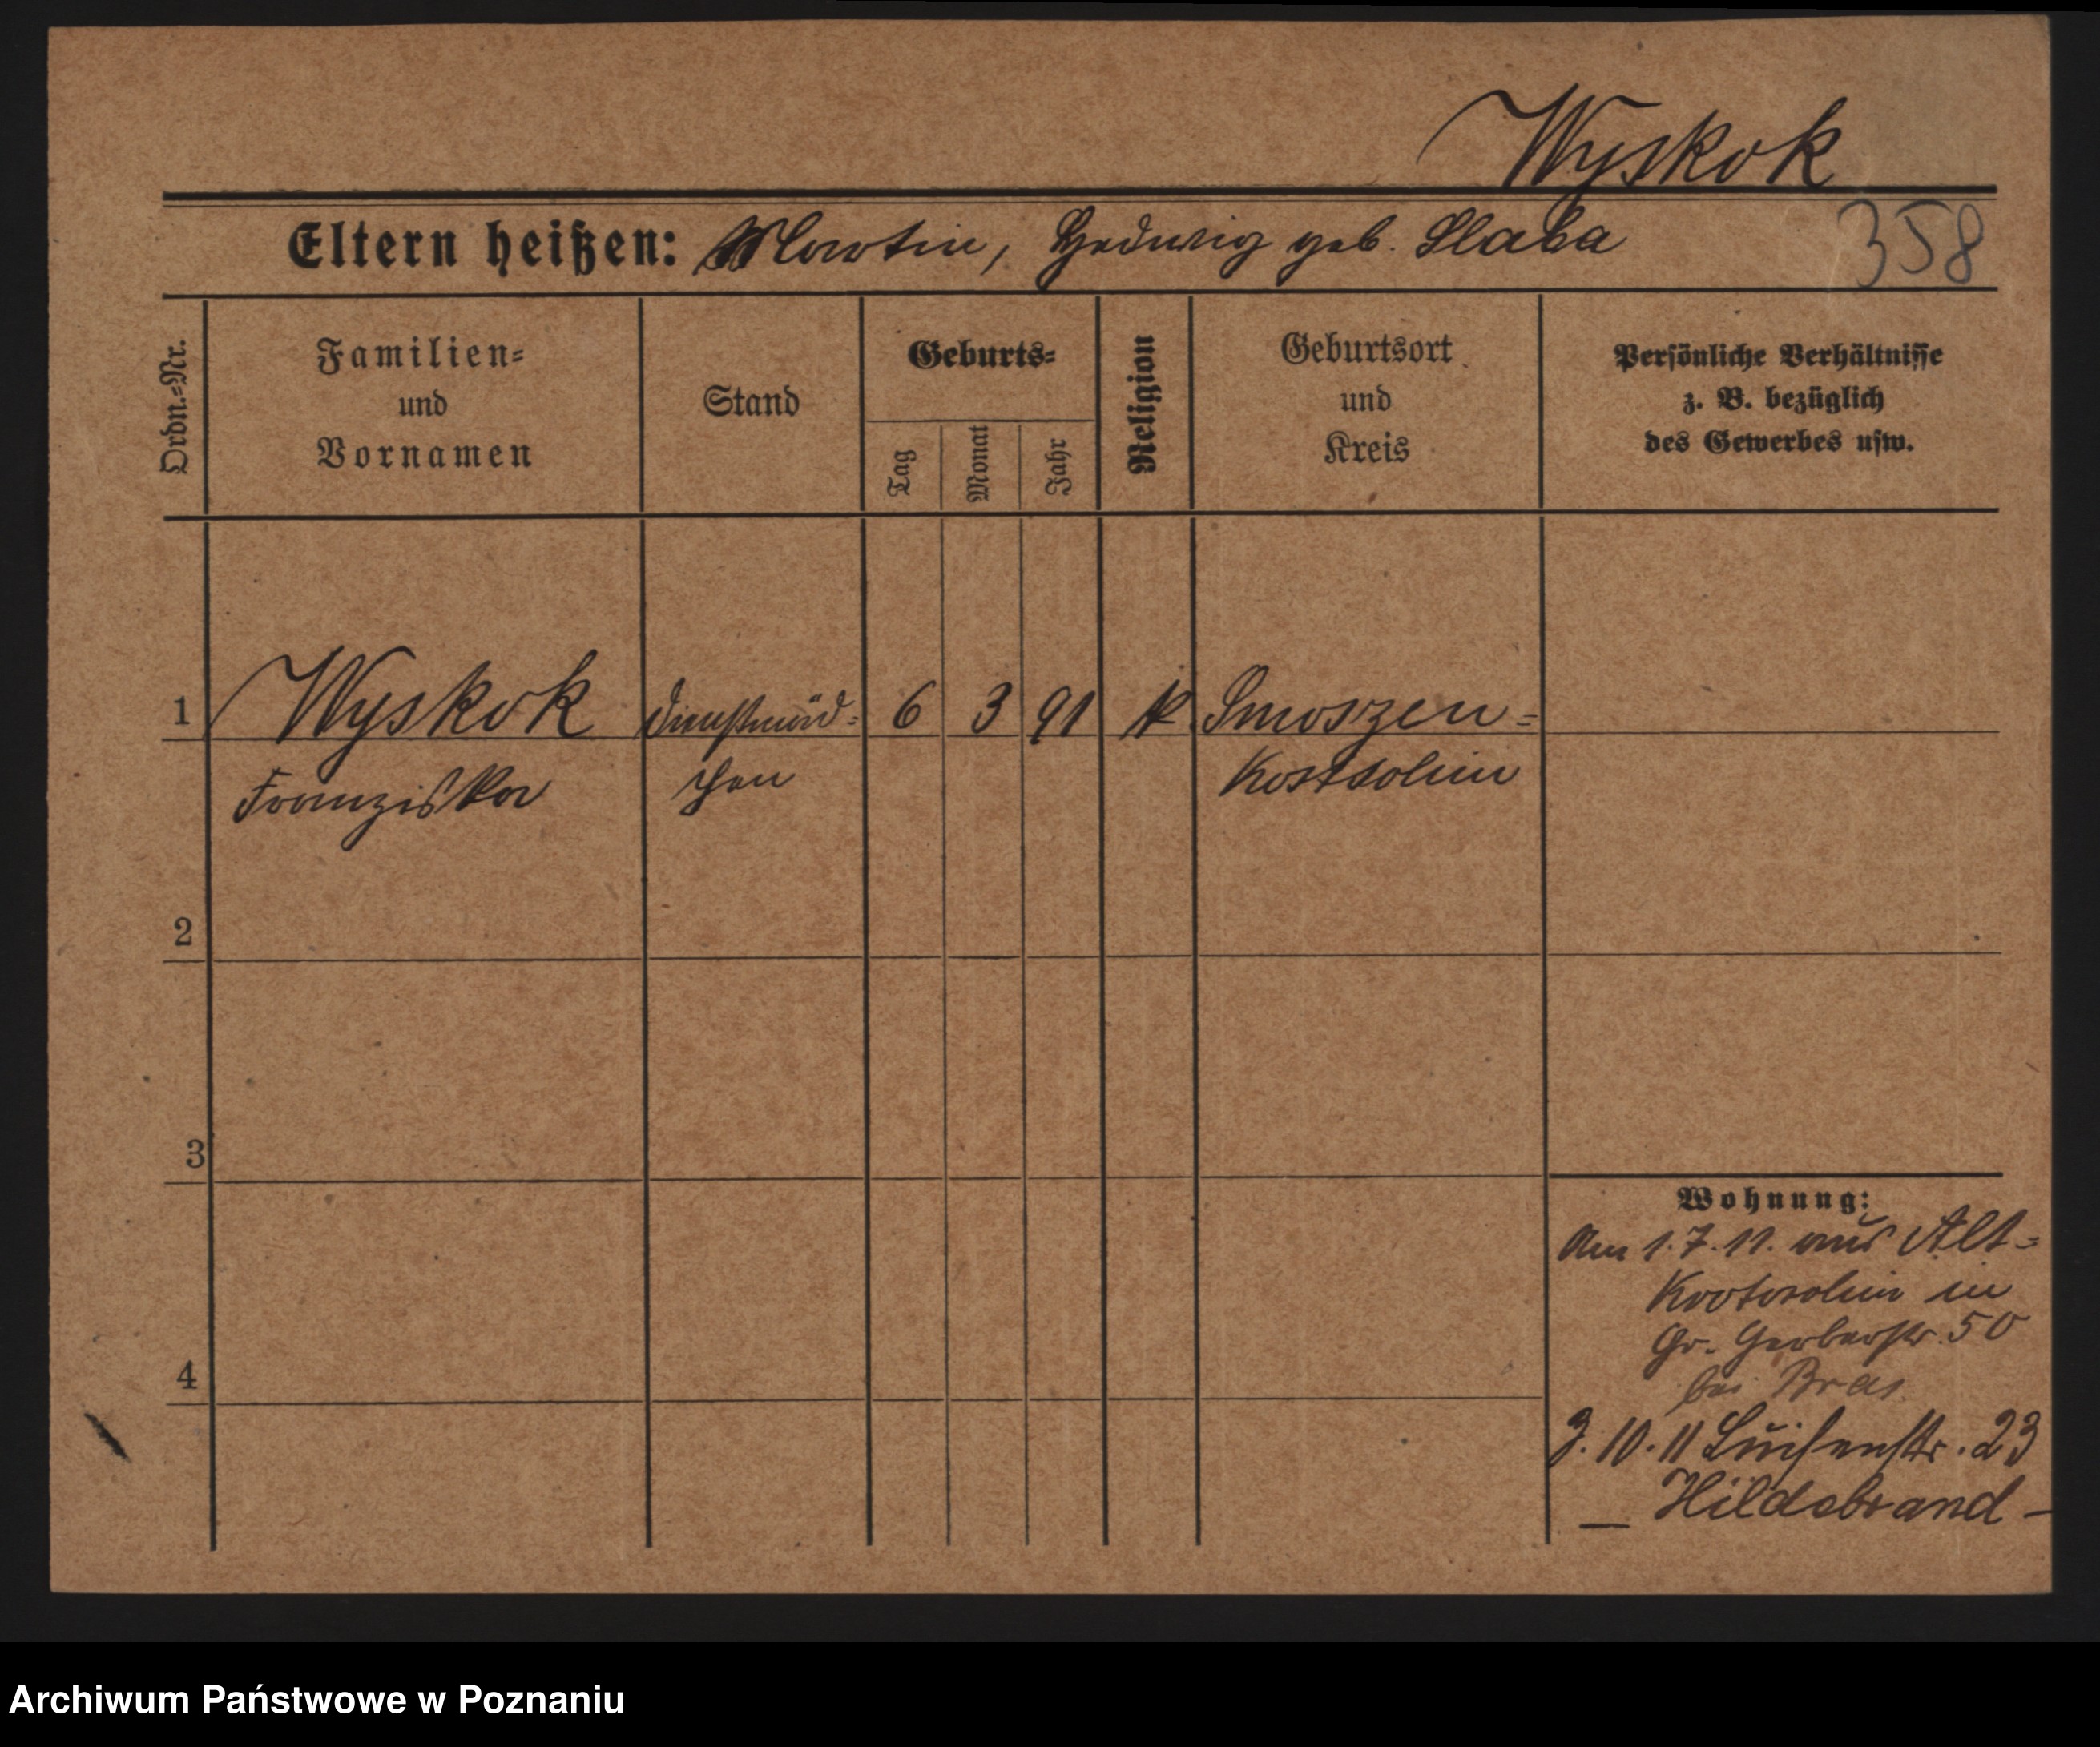 Wyskok
Eltern heißen: Martin, Hedwig geb. Slaba
358
Ordn.=Nr.
Familien=
und
Vornamen
Stand
Geburts=
Tag
Monat
Jahr
Religion
Geburtsort
und
Kreis
Persönliche Verhältnisse
z. B. bezüglich
des Gewerbes usw.
1 Wyskok Dienstmäd= 6 3 91 k Smoszen=
Franziska chen
2
3
4
Wohnung:
Am 1.7.11. aus Alt=
in
Gr. Gerberstr. 50
bei
3.10.11 Luisenstr. 23
— Hildebrand —
Archiwum Państwowe w Poznaniu